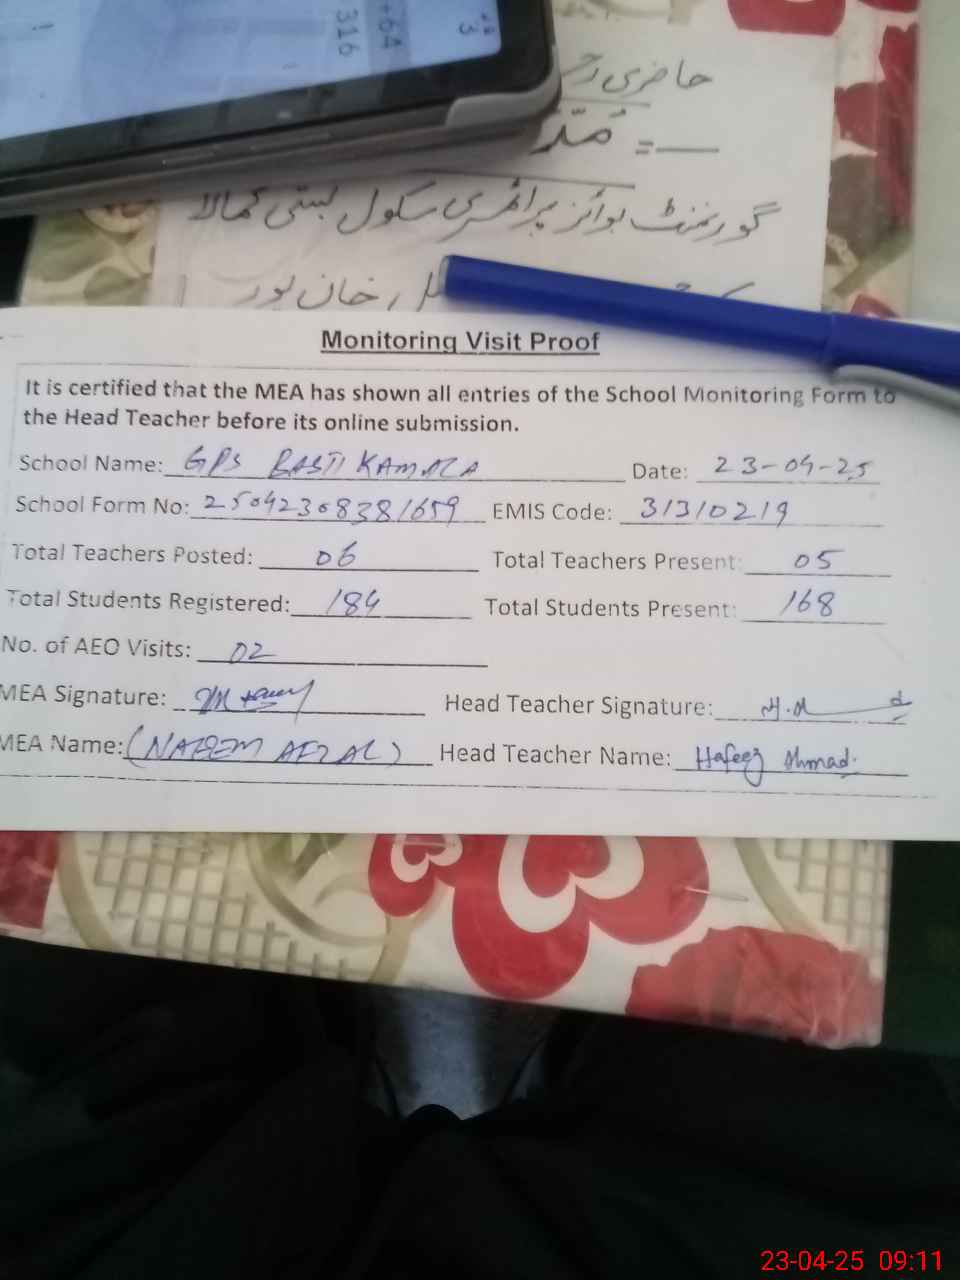 +64
316
3
حاضری
گورنمنٹ بوائز پرائمری سکول بستی کمالا
خان پور
Monitoring Visit Proof
It is certified that the MEA has shown all entries of the School Monitoring Form to
the Head Teacher before its online submission.
School Name: GPS BASTI KAMALA Date: 23-04-25
School Form No: 25042308381659 EMIS Code: 31310219
Total Teachers Posted: 06 Total Teachers Present: 05
Total Students Registered: 184 Total Students Present: 168
No. of AEO Visits: 02
MEA Signature: Head Teacher Signature:
MEA Name: (NAEEM AFZAL) Head Teacher Name: Hafeez Ahmad.
23-04-25 09:11